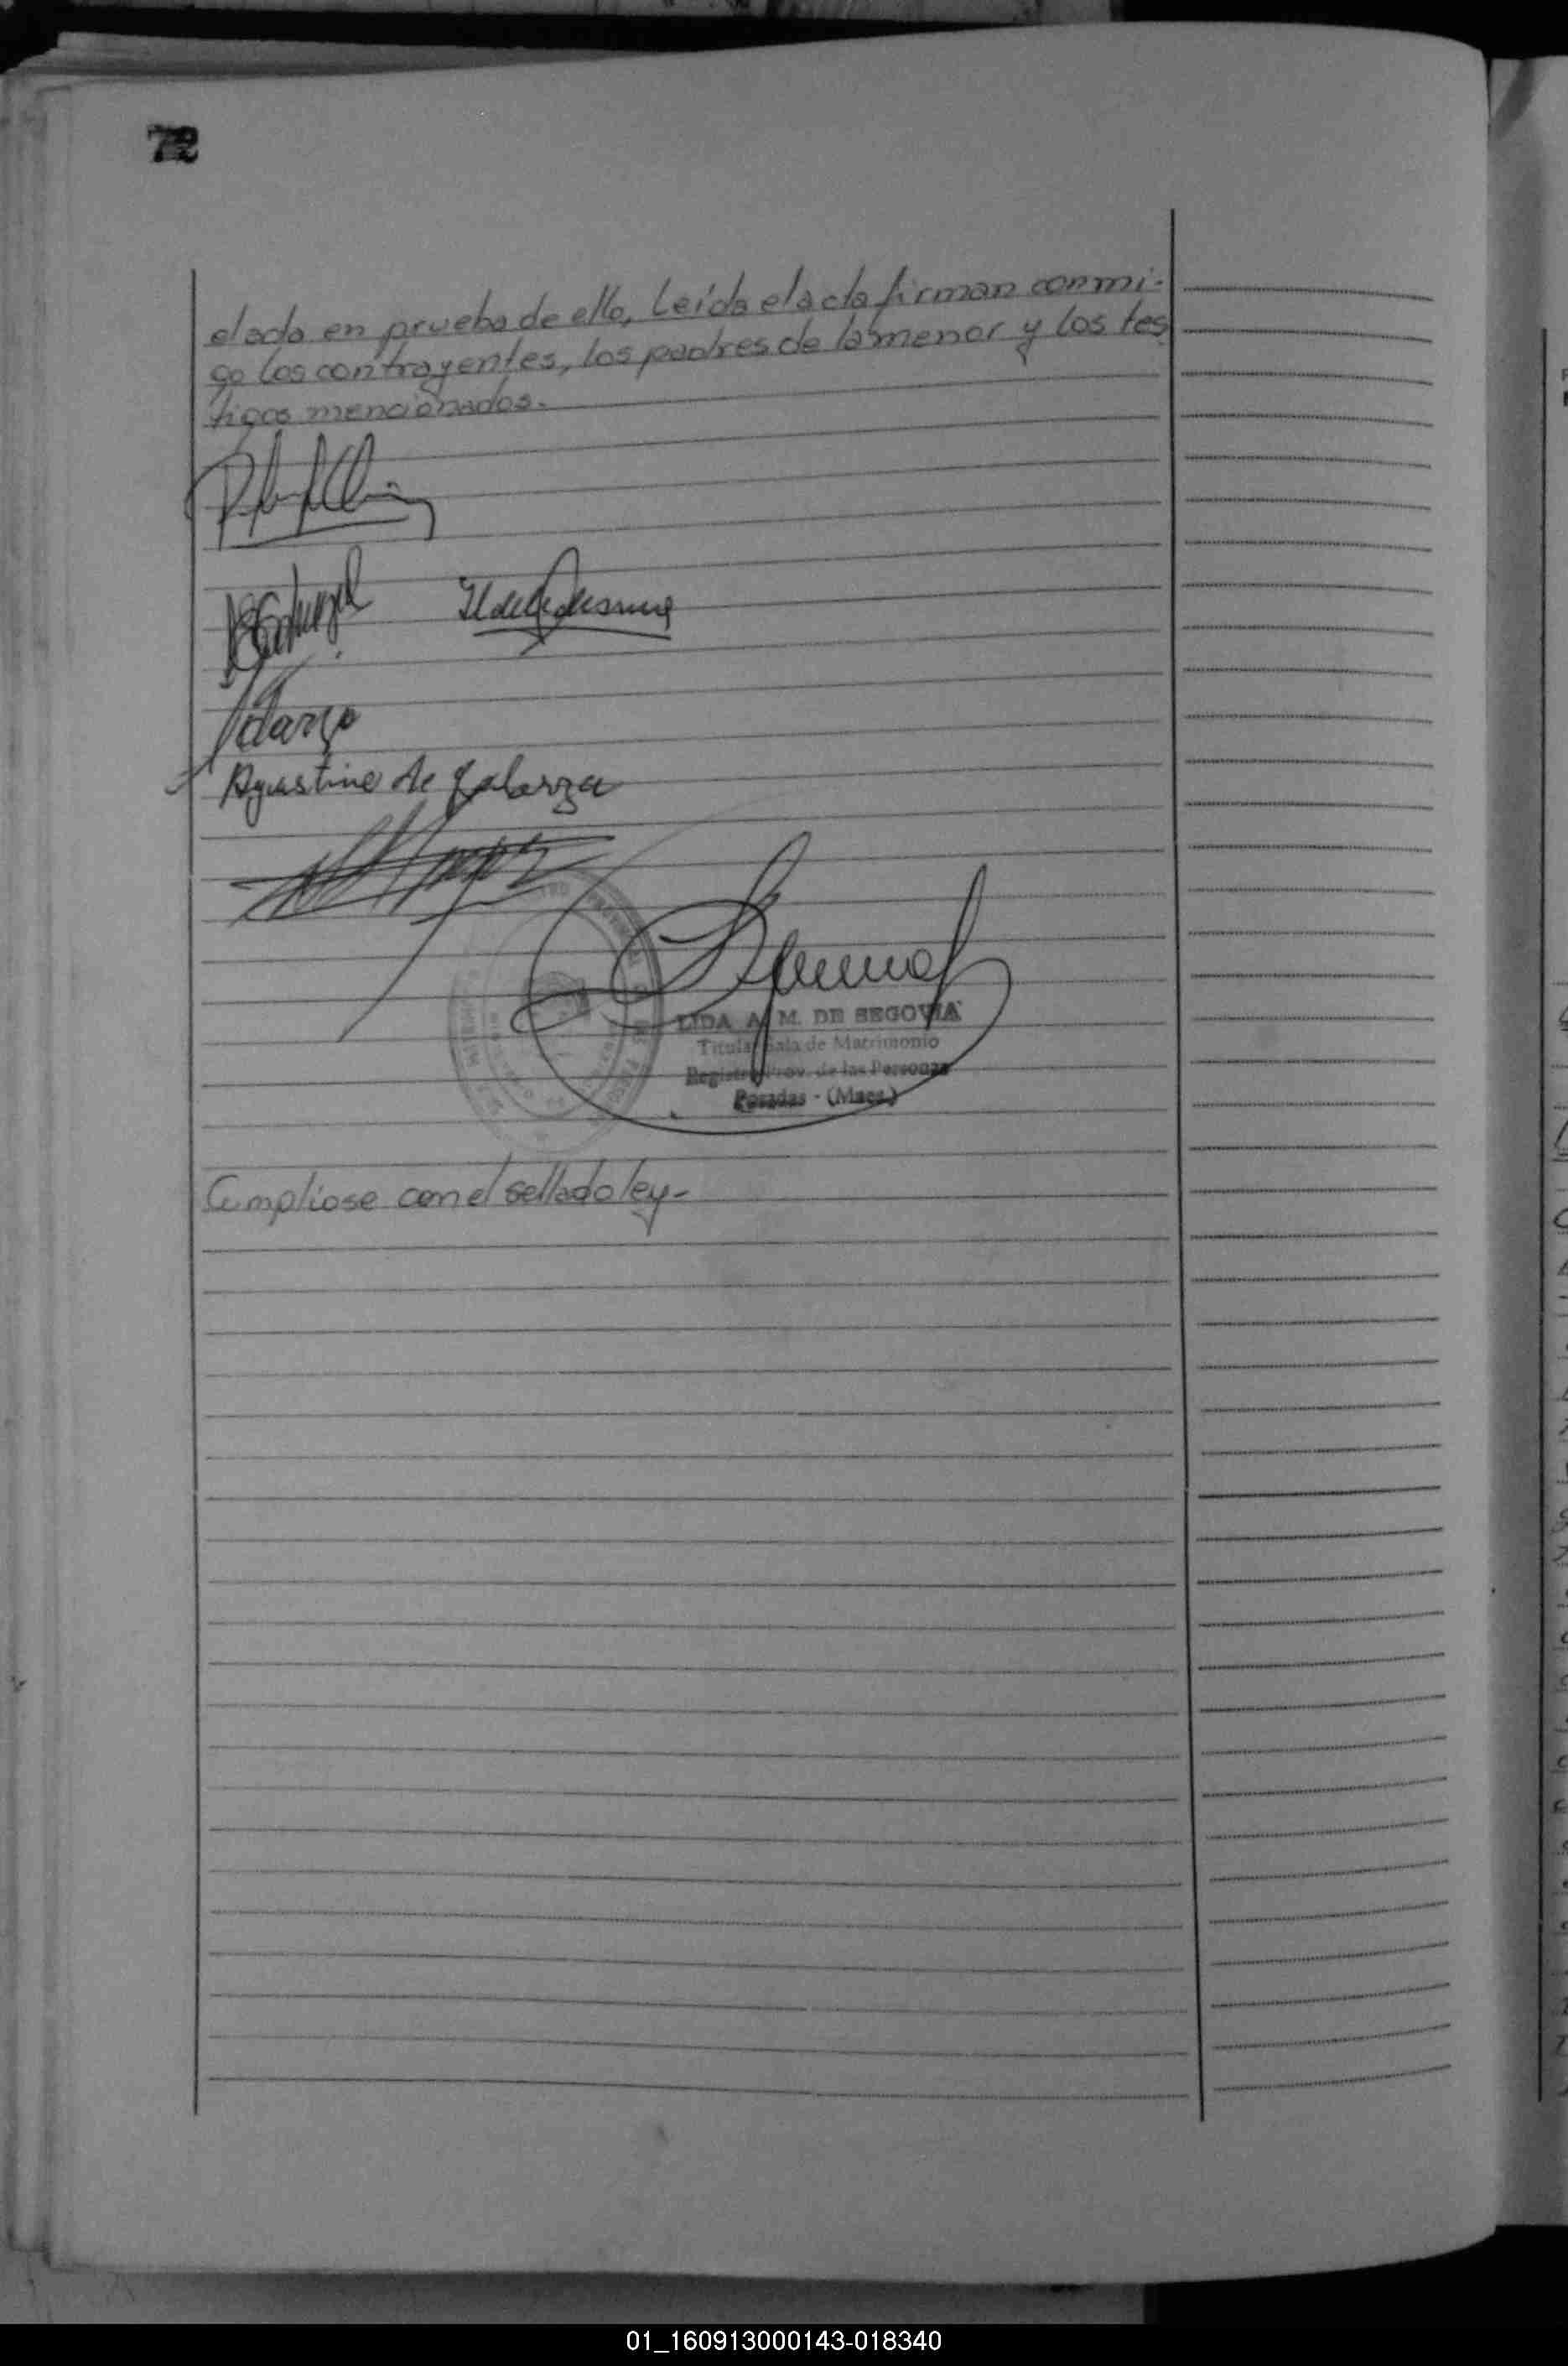 72
elado en prueba de ello, Leida elacta firman conmi-
go los contrayentes, los padres de la menor y los tes
tigos mencionados.-
Agustina de Galarza
LIDA A. M. DE SEGOVIA
Titular Sala de Matrimonio
Registro Prov. de las Personas
Posadas - (Mnes.)
Cumpliose con el sellado ley-
01_160913000143-018340